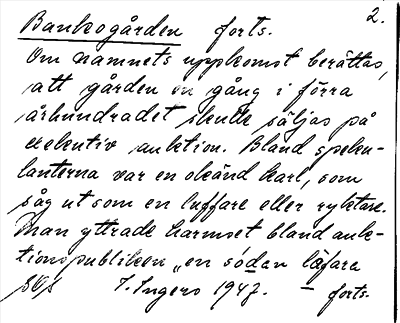 2.
Bankogården forts.
Om namnets uppkomst berättas,
att gården en gång i förra
århundradet skulle säljas på
exekutiv auktion. Bland speku-
lanterna var en okänd karl, som
såg ut som en luffare eller ryktare.
Man yttrade harmset bland auk-
tionspubliken „en sódan låfara
T. Ingers 1947. forts.